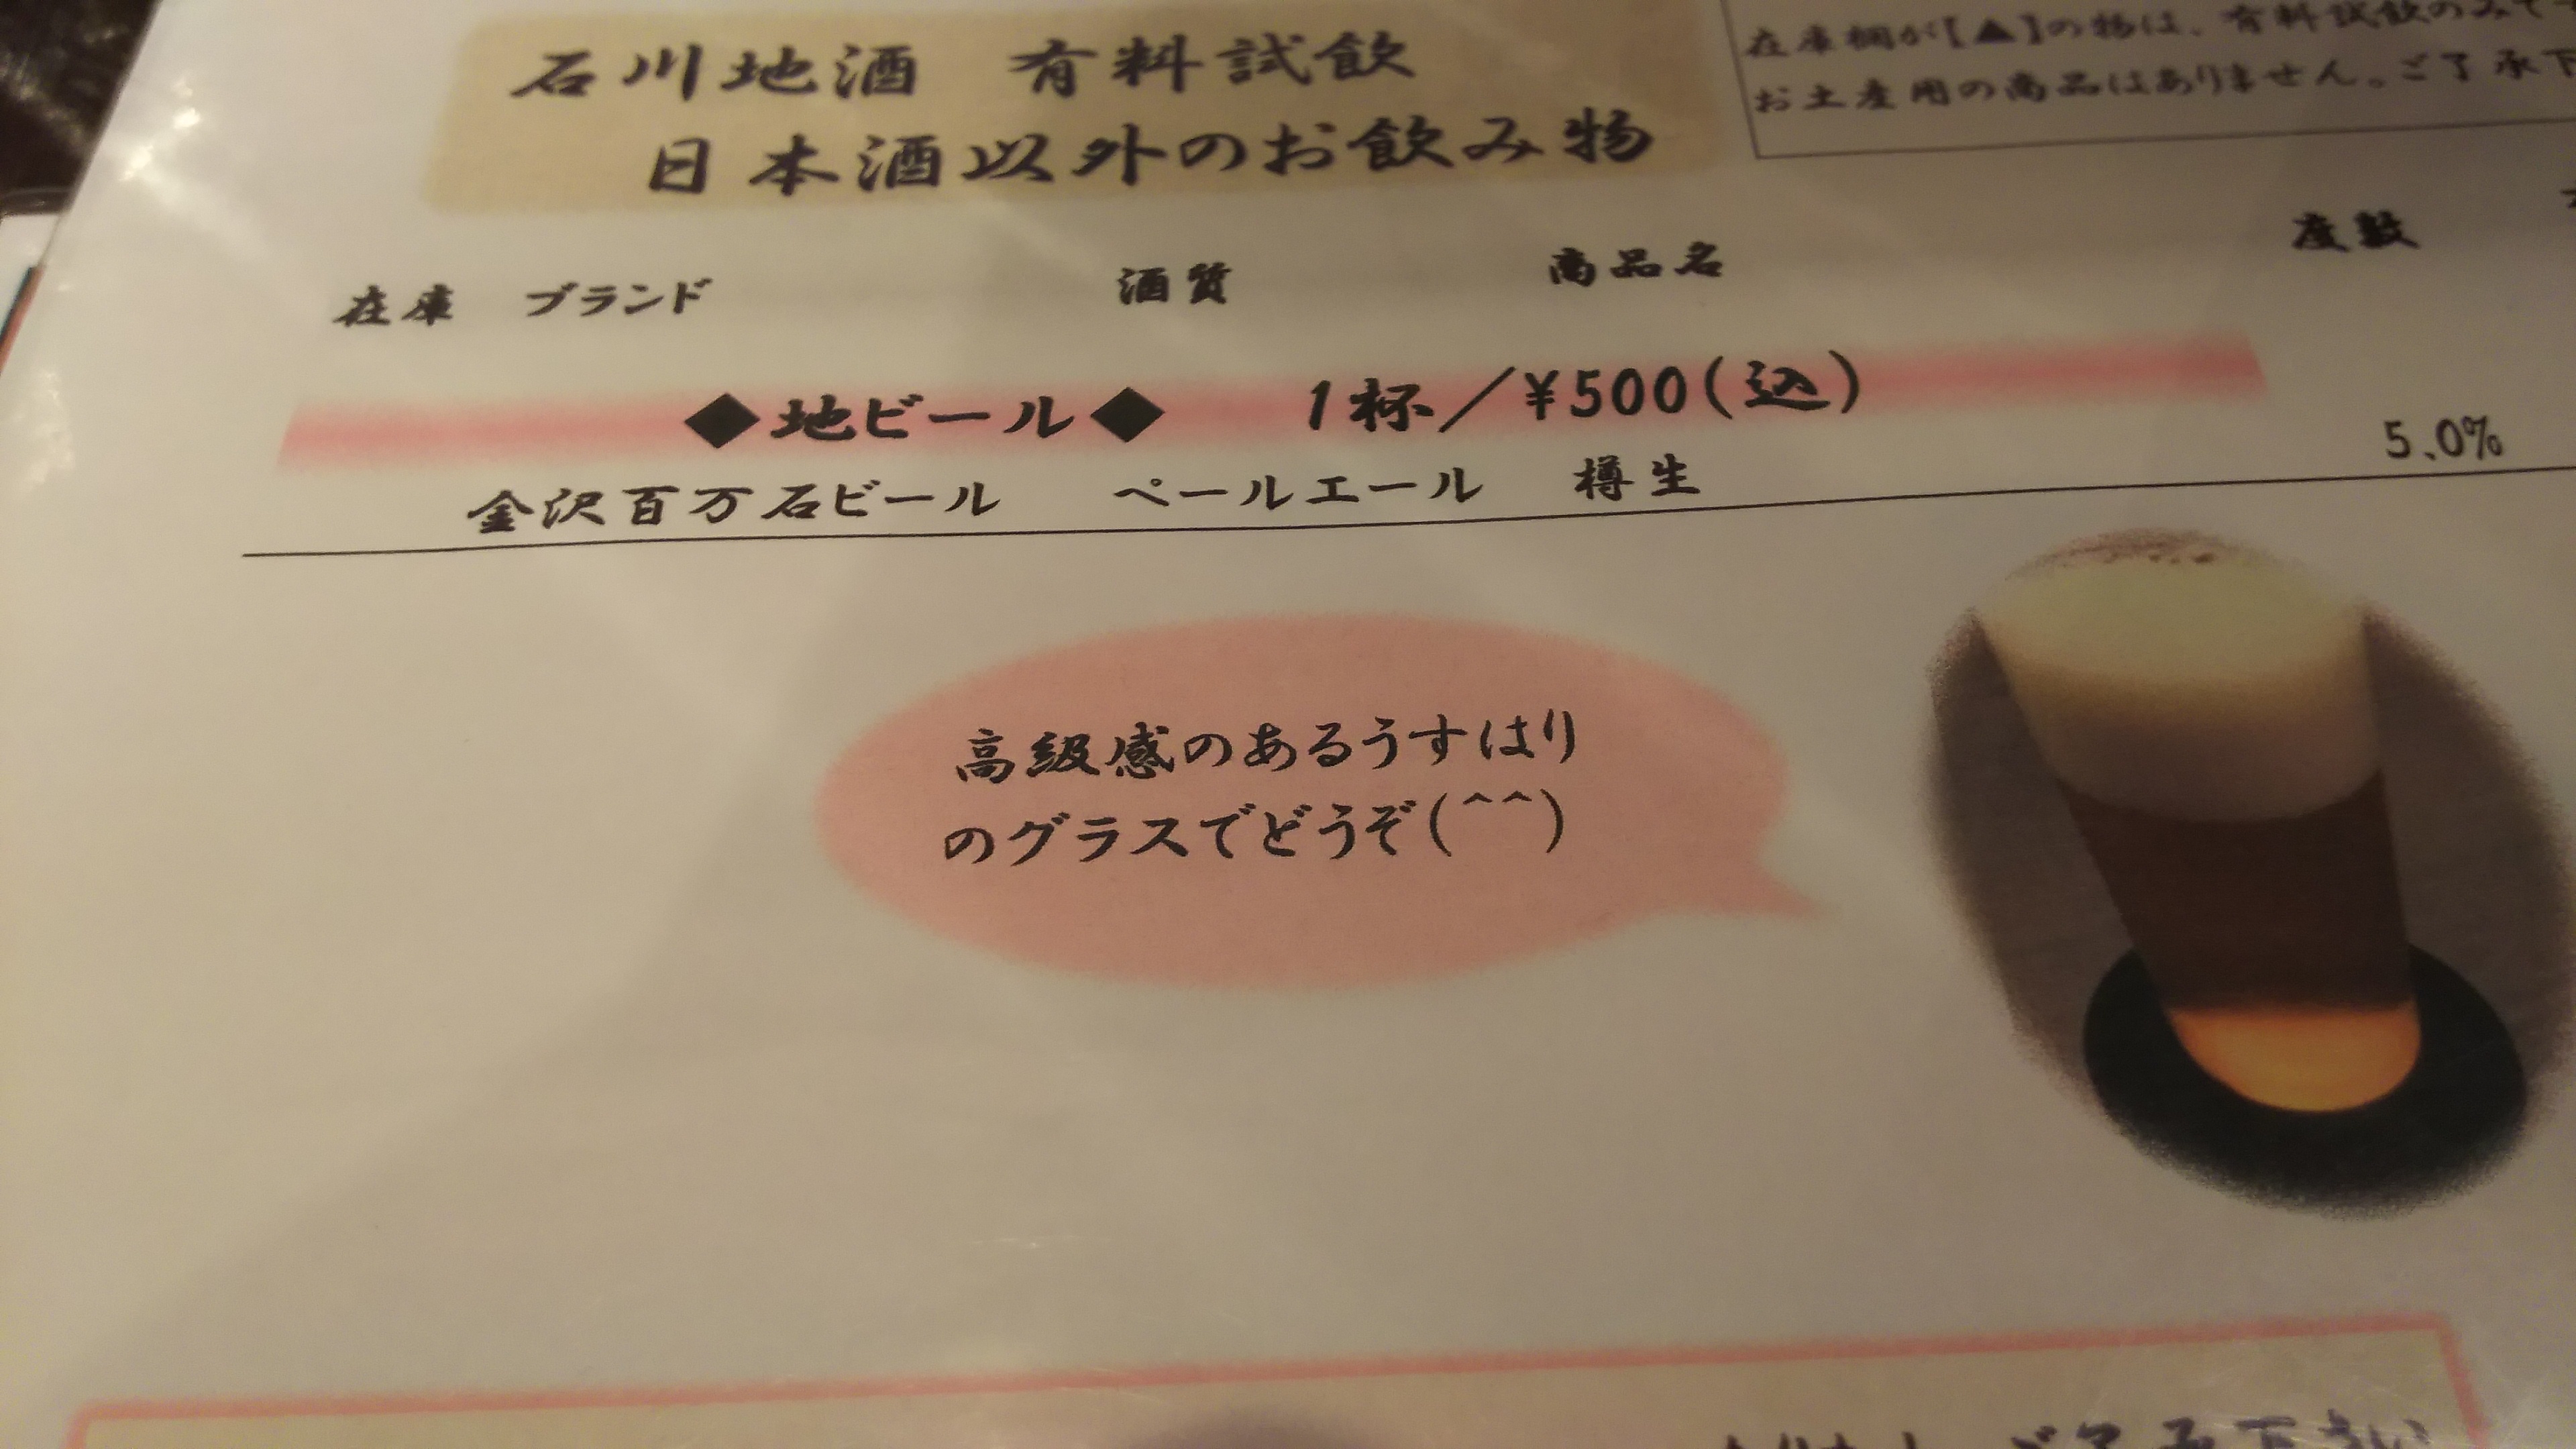 石川地酒 有料試飲
日本酒以外のお飲み物
在庫欄が【▲】の物は、有料試飲のみで
お土産用の商品はありません。ご了承下
在庫 ブランド 酒質 商品名 度数
◆地ビール◆ 1杯/¥500(込)
金沢百万石ビール ペールエール 樽生 5.0%
高級感のあるうすはり
のグラスでどうぞ(^^)